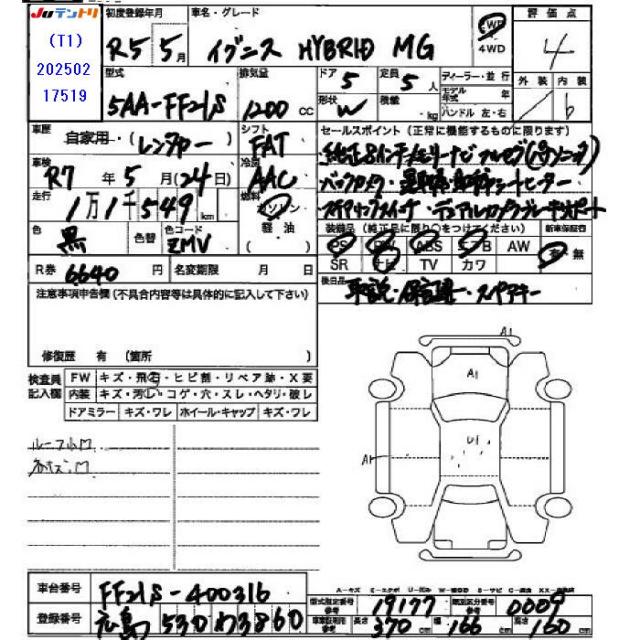 JUテントリ
(T1)
202502
17519
初度登録年月
R5 5月
車名・グレード
イグニス HYBRID MG
2WD
4WD
評価点
4
外装 内装
b
型式
5AA-FF21S
排気量
1200 cc
ドア 5
定員 5 人
形状 W
積載 kg
ディーラー・並行
モデル年式 年
ハンドル 左・右
車歴
自家用・(レンタカー)
シフト
FAT
セールスポイント(正常に機能するものに限ります)
純正8インチメモリーナビ フルセグ(パナソニック)
車検
R7 年 5 月(24日)
冷房
AAC
バックカメラ・シートヒーター
走行
1万1千549 km
燃料
ガソリン
軽油
ステアリングスイッチ・デュアルセンサーブレーキサポート
色
黒
色替
色コード
ZMV
装備品(純正品に限り○をつけてください)
新車保証書
PS PW ABS エアB AW
SR ナビ TV カワ
有・無
R券 6640 円
名変期限 月 日
後日品
取説・保証書・スペアキー
注意事項申告欄(不具合内容等は具体的に記入して下さい)
修復歴 有(箇所 )
検査員
記入欄
FW キズ・飛石・ヒビ割・リペア跡・X要
内装 キズ・汚レ・コゲ・穴・スレ・ヘタリ・破レ
ドアミラー キズ・ワレ ホイール・キャップ キズ・ワレ
ルーフ小凹
A1
A1
U1
A1
車台番号
FF21S-400316
登録番号
広島 530 わ3860
型式指定番号 参考
19177
類別区分番号 参考
0009
長さ 370 cm 幅 166 cm 高さ 160 cm